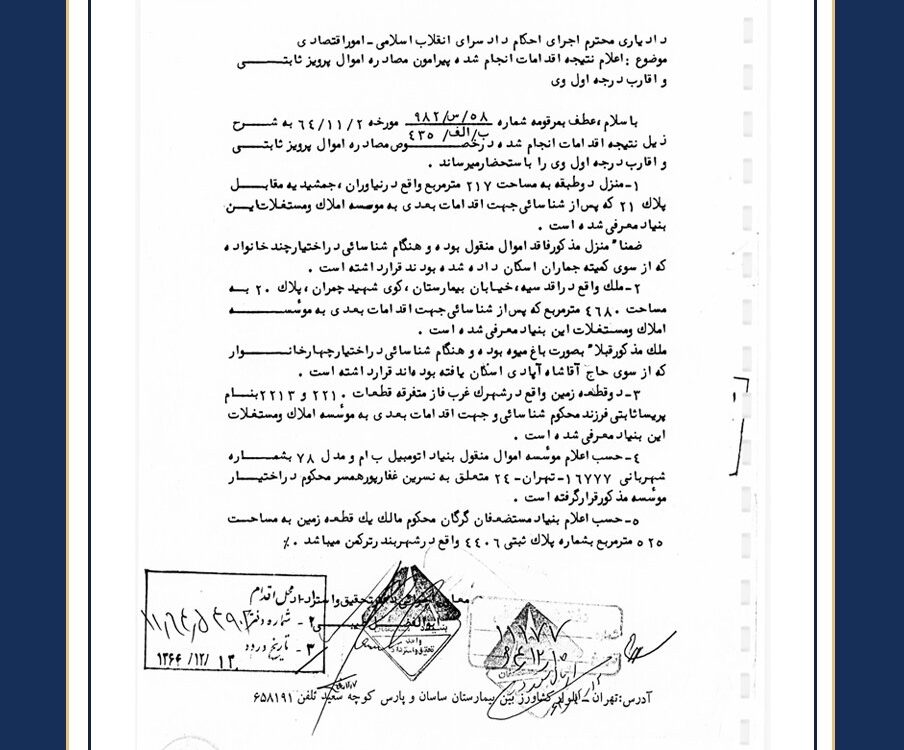 دادیاری محترم اجرای احکام دادسرای انقلاب اسلامی - امور اقتصادی
موضوع : اعلام نتیجه اقدامات انجام شده پیرامون مصادره اموال پرویز ثابتی
و اقارب درجه اول وی
باسلام ، عطف بمرقومه شماره ۵۸/س/۹۸۲ مورخه ۶۴/۱۱/۲ به شرح
ب/الف/ ۴۳۵
ذیل نتیجه اقدامات انجام شده درخصوص مصادره اموال پرویز ثابتی
و اقارب درجه اول وی را باستحضار میرساند .
۱-منزل دوطبقه به مساحت ۲۱۷ مترمربع واقع در نیاوران ، جمشیدیه مقابل
پلاک ۲۱ که پس از شناسائی جهت اقدامات بعدی به موسسه املاک ومستغلات این
بنیاد معرفی شده است .
ضمنا" منزل مذکور فاقد اموال منقول بوده و هنگام شناسائی در اختیار چند خانواده
که از سوی کمیته جماران اسکان داده شده بودند قرار داشته است .
۲-ملک واقع در اقدسیه ، خیابان بیمارستان ، کوی شهید چمران ، پلاک ۲۰ به
مساحت ۴۶۸۰ مترمربع که پس از شناسائی جهت اقدامات بعدی به موُسسه
املاک ومستغلات این بنیاد معرفی شده است .
ملک مذکور قبلا" بصورت باغ میوه بوده و هنگام شناسائی در اختیار چهار خانوار
که از سوی حاج آقا شاه آبادی اسکان یافته بوده‌اند قرار داشته است .
۳-دوقطعه زمین واقع در شهرک غرب فاز متفرقه قطعات ۲۲۱۰ و ۲۲۱۳ بنام
پریسا ثابتی فرزند محکوم شناسائی و جهت اقدامات بعدی به موُسسه املاک ومستغلات
این بنیاد معرفی شده است .
۴-حسب اعلام موُسسه اموال منقول بنیاد اتومبیل ب ام و مدل ۷۸ بشماره
شهربانی ۱۶۷۷۷-تهران-۲۴ متعلق به نسرین غفارپور همسر محکوم در اختیار
موُسسه مذکور قرار گرفته است .
۵-حسب اعلام بنیاد مستضعفان گرگان محکوم مالک یک قطعه زمین به مساحت
۵۲۵ مترمربع بشماره پلاک ثبتی ۴۴۰۶ واقع در شهر بندر ترکمن میباشد ./
محل اقدام
۲- شماره دفتر
۳- تاریخ ورود
۱۳۶۴/۱۲/۱۳
واحد
تحقیق و استرداد
آدرس: تهران - بلوار کشاورز بین بیمارستان ساسان و پارس کوچه سعید تلفن ۶۵۸۱۹۱